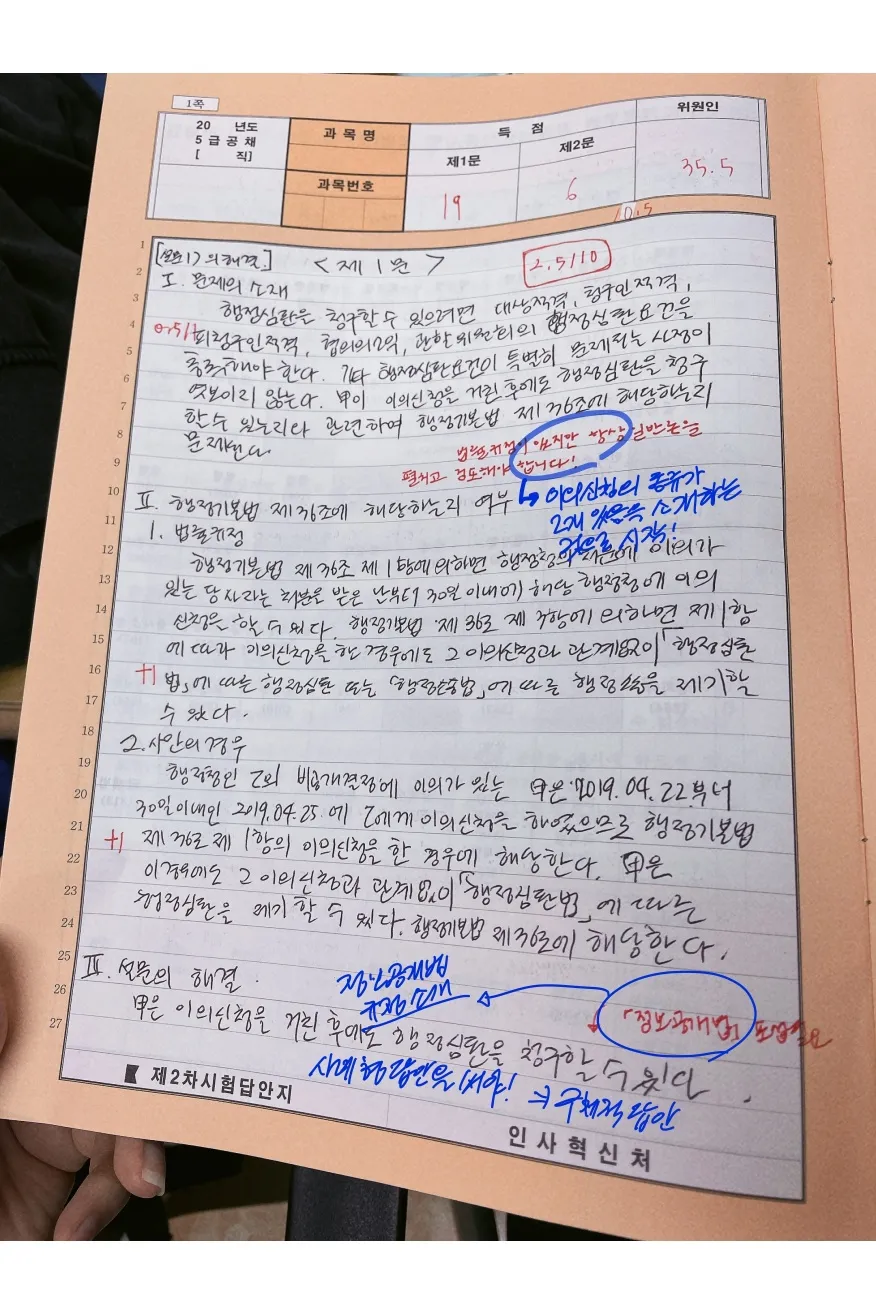 1쪽
20 년도
5 급 공 채
[ 직]
과 목 명
과목번호
득 점
제1문
제2문
위원인
19
6
35.5
10.5
[설문1)의 해결.]
< 제 1 문 >
2.5/10
I. 문제의 소재
행정심판을 청구할 수 있으려면 대상적격, 청구인적격,
0.5/1
피청구인적격, 협의의 소익, 관할 위원회의 행정심판요건을
충족해야 한다. 기타 행정심판요건이 특별히 문제되는 사정이
엿보이지 않는다. 甲이 이의신청을 거친 후에도 행정심판을 청구
할 수 있는지와 관련하여 행정기본법 제36조에 해당하는지
문제된다
법률규정이 있지만 항상 일반론을
펼치고 검토해야 합니다!
II. 행정기본법 제36조에 해당하는지 여부
↳ 이의신청의 종류가
2개 있음을 소개하는
것으로 시작!
1. 법률규정
행정기본법 제36조 제1항에 의하면 행정청의 처분에 이의가
있는 당사자는 처분을 받은 날부터 30일 이내에 해당 행정청에 이의
신청을 할 수 있다. 행정기본법 제36조 제3항에 의하면 제1항
에 따라 이의신청을 한 경우에도 그 이의신청과 관계없이 「행정심판
+1
법」에 따른 행정심판 또는 「행정소송법」에 따른 행정소송을 제기할
수 있다.
2. 사안의 경우
행정청인 乙의 비공개결정에 이의가 있는 甲은 2019.04.22부터
30일이내인 2019.04.25 에 乙에게 이의신청을 하였으므로 행정기본법
+1
제36조 제1항의 이의신청을 한 경우에 해당한다. 甲은
이 경우에도 그 이의신청과 관계없이 「행정심판법」에 따른
행정심판을 제기할 수 있다. 행정기본법 제36조에 해당한다.
III. 설문의 해결.
정보공개법
규정 소개
「정보공개법」 포섭필요
甲은 이의신청을 거친 후에도 행정심판을 청구할 수 있다.
사례형 답안을 써야! ⇒ 구체적 답안
제2차시험답안지
인 사 혁 신 처
1
2
3
4
5
6
7
8
9
10
11
12
13
14
15
16
17
18
19
20
21
22
23
24
25
26
27